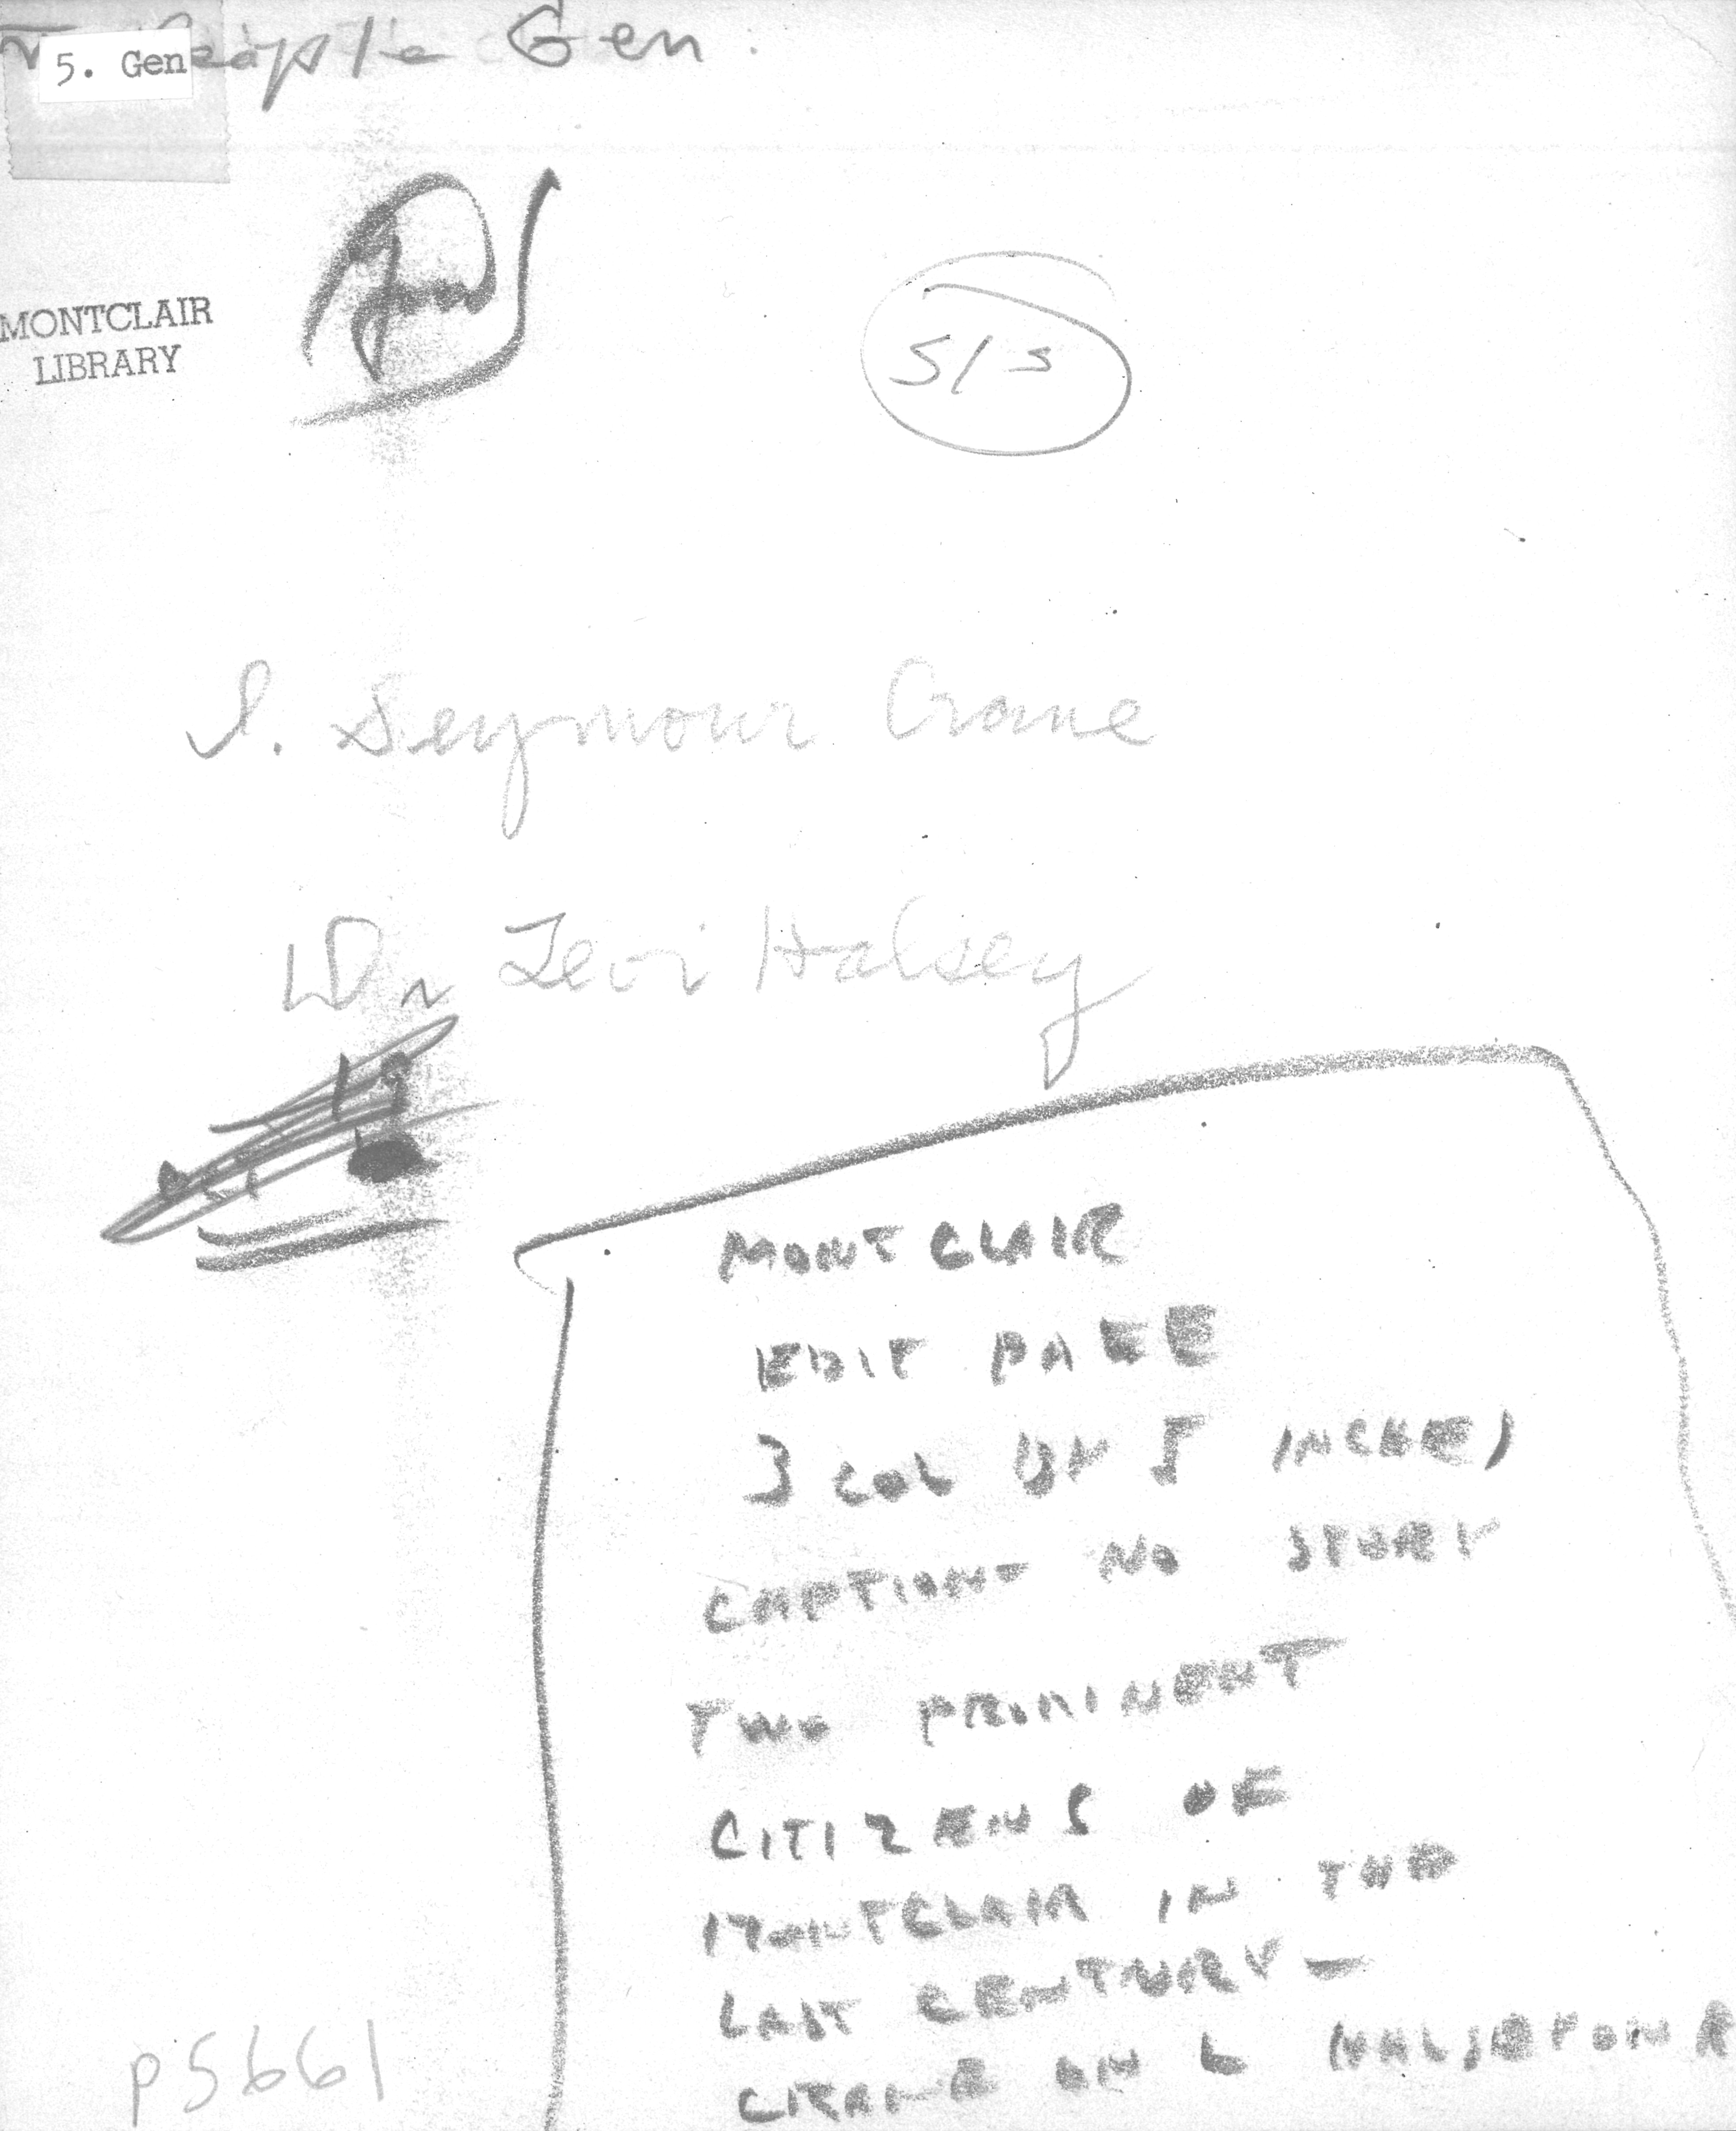 People Gen.
5. Gen
MONTCLAIR
LIBRARY
S/S
I. Seymour Crane
Dr Levi Halsey
MONTCLAIR
EDIT PAGE
3 COL BY 5 INCHES
CAPTION- NO STORY
TWO PROMINENT
CITIZENS OF
MONTCLAIR IN THE
LAST CENTURY —
CRANE ON L HALSEY ON R
P5661